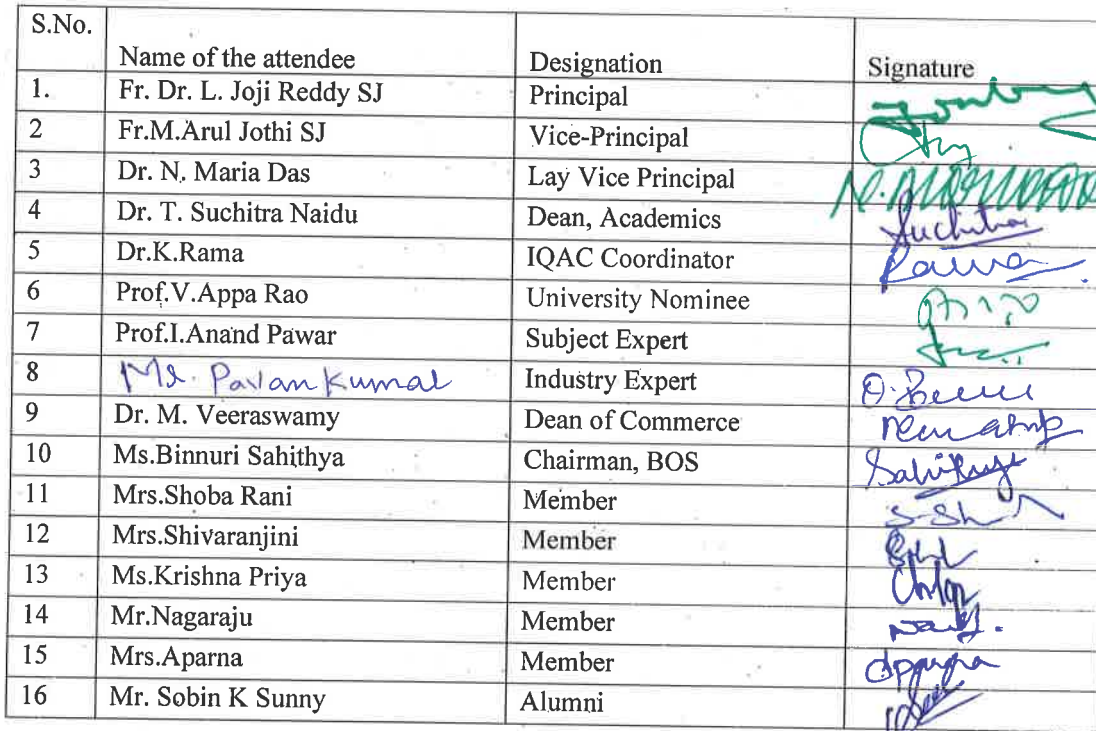 S.No. Name of the attendee Designation Signature
1. Fr. Dr. L. Joji Reddy SJ Principal
2 Fr.M.Arul Jothi SJ Vice-Principal
3 Dr. N. Maria Das Lay Vice Principal
4 Dr. T. Suchitra Naidu Dean, Academics Suchitra
5 Dr.K.Rama IQAC Coordinator Rama
6 Prof.V.Appa Rao University Nominee
7 Prof.I.Anand Pawar Subject Expert
8 Mr. Pavan Kumar Industry Expert
9 Dr. M. Veeraswamy Dean of Commerce
10 Ms.Binnuri Sahithya Chairman, BOS
11 Mrs.Shoba Rani Member
12 Mrs.Shivaranjini Member
13 Ms.Krishna Priya Member
14 Mr.Nagaraju Member
15 Mrs.Aparna Member
16 Mr. Sobin K Sunny Alumni